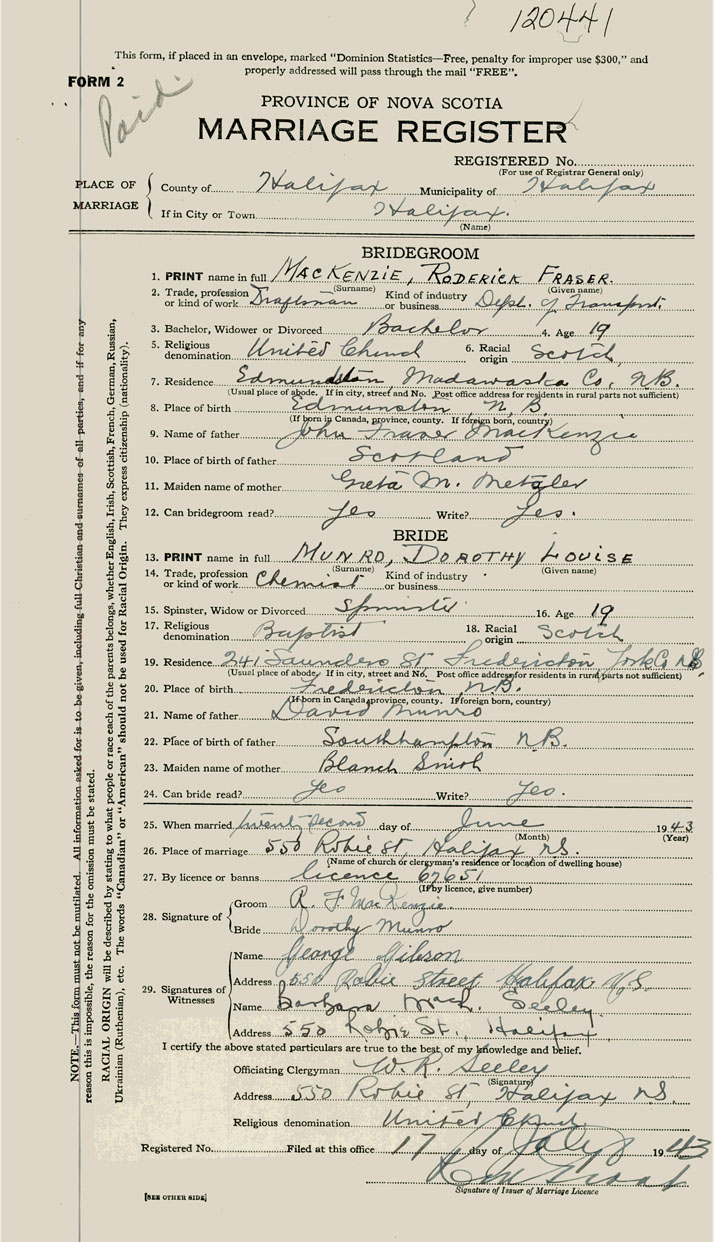 120441
This form, if placed in an envelope, marked "Dominion Statistics—Free, penalty for improper use $300," and
properly addressed will pass through the mail "FREE".
FORM 2
Paid.
PROVINCE OF NOVA SCOTIA
MARRIAGE REGISTER
REGISTERED No.
(For use of Registrar General only)
PLACE OF MARRIAGE
County of Halifax Municipality of Halifax
If in City or Town Halifax.
(Name)
BRIDEGROOM
1. PRINT name in full MACKENZIE, RODERICK FRASER.
(Surname) (Given name)
2. Trade, profession or kind of work Draftsman Kind of industry or business Dept. of Transport.
3. Bachelor, Widower or Divorced Bachelor 4. Age 19
5. Religious denomination United Church 6. Racial origin Scotch
7. Residence Edmundston, Madawaska Co, N.B.
(Usual place of abode. If in city, street and No. Post office address for residents in rural parts not sufficient)
8. Place of birth Edmunston, N.B.
(If born in Canada, province, county. If foreign born, country)
9. Name of father John Fraser MacKenzie
10. Place of birth of father Scotland
11. Maiden name of mother Greta M. Metzler
12. Can bridegroom read? Yes Write? Yes.
BRIDE
13. PRINT name in full MUNRO, DOROTHY LOUISE
(Surname) (Given name)
14. Trade, profession or kind of work Chemist Kind of industry or business
15. Spinster, Widow or Divorced Spinster 16. Age 19
17. Religious denomination Baptist 18. Racial origin Scotch
19. Residence 241 Saunders St, Fredericton, York Co N.B.
(Usual place of abode. If in city, street and No. Post office address for residents in rural parts not sufficient)
20. Place of birth Fredericton, N.B.
(If born in Canada, province, county. If foreign born, country)
21. Name of father David Munro
22. Place of birth of father Southhampton N.B.
23. Maiden name of mother Blanch Smith
24. Can bride read? Yes Write? Yes.
25. When married twenty second day of June 1943
(Month) (Year)
26. Place of marriage 550 Robie St, Halifax N.S.
(Name of church or clergyman's residence or location of dwelling house)
27. By licence or banns licence 67651
(If by licence, give number)
28. Signature of
Groom R. F. MacKenzie.
Bride Dorothy Munro
29. Signatures of Witnesses
Name George Gibson
Address 550 Robie Street Halifax N.S.
Name Barbara Seeley
Address 550 Robie St., Halifax
I certify the above stated particulars are true to the best of my knowledge and belief.
Officiating Clergyman W. R. Seeley
(Signature)
Address 550 Robie St, Halifax N.S.
Religious denomination United
Registered No. Filed at this office 17 day of July 1943
Signature of Issuer of Marriage Licence
[SEE OTHER SIDE]
NOTE.—This form must not be mutilated. All information asked for is to be given, including full Christian and surnames of all parties, and if for any
reason this is impossible, the reason for the omission must be stated.
RACIAL ORIGIN will be described by stating to what people or race each of the parents belongs, whether English, Irish, Scottish, French, German, Russian,
Ukrainian (Ruthenian), etc. The words "Canadian" or "American" should not be used for Racial Origin. They express citizenship (nationality).